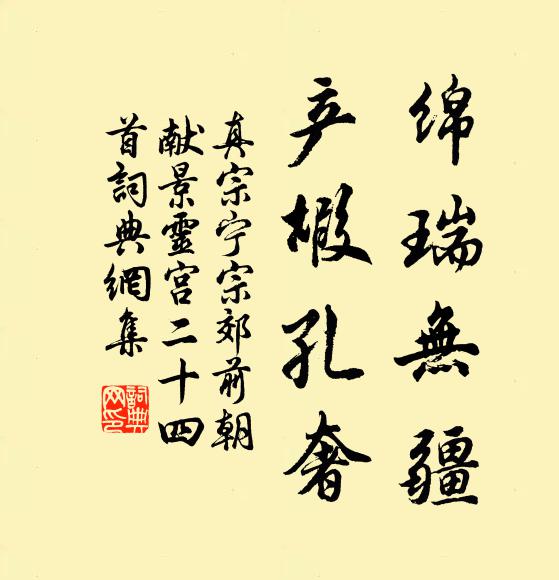 绵瑞無疆
产嘏孔奢
真宗宁宗郊前朝
献景靈宫二十四
首詞典網集
詞典
网印